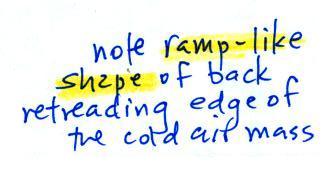 note ramp-like
shape of back
retreading edge of
the cold air mass